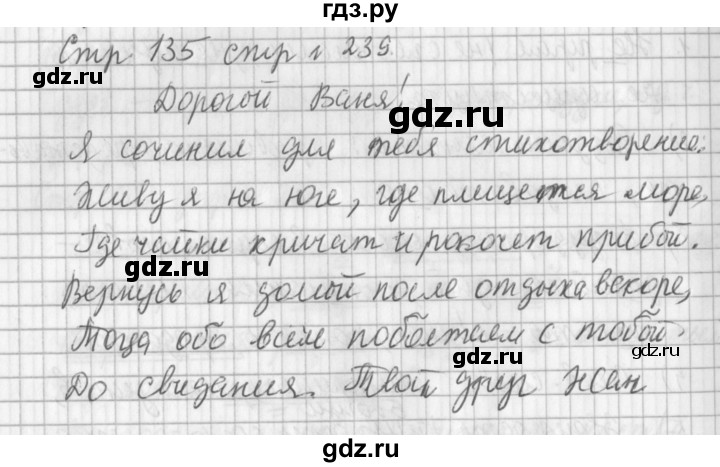 гдз.ру
Стр 135 стр № 239
Дорогой Ваня!
gdz.ru
Я сочинил для тебя стихотворение.
Живу я на юге, где плещется море,
Где чайки кричат и рокочет прибой.
gdz.ru
Вернусь я домой после отдыха вскоре,
Тогда обо всём поболтаем с тобой.
gdz.ru
gdz.ru
До свидания. Твой друг Жан
gdz.ru